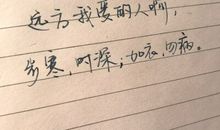 远方我爱的人啊，
岁寒，时深；加衣，勿病。